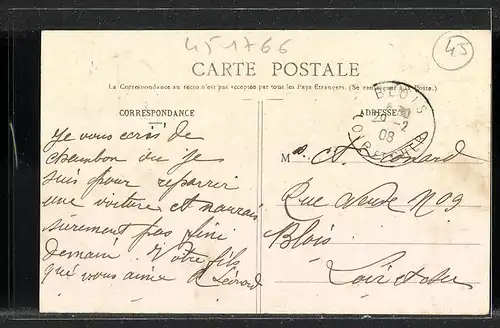 451766
45
CARTE POSTALE
La Correspondance au recto n'est pas acceptée par tous les Pays Étrangers. (Se renseigner à la Poste.)
CORRESPONDANCE
ADRESSE
BLOIS
-2
08
LOIR-ET-CHER
Je vous ecris de
chambon ou je
suis pour reparrer
une voiture et naurais
surement pas fini
demain. Votre fils
qui vous aime
M
Rue Neuve No 9
Blois
Loir et cher